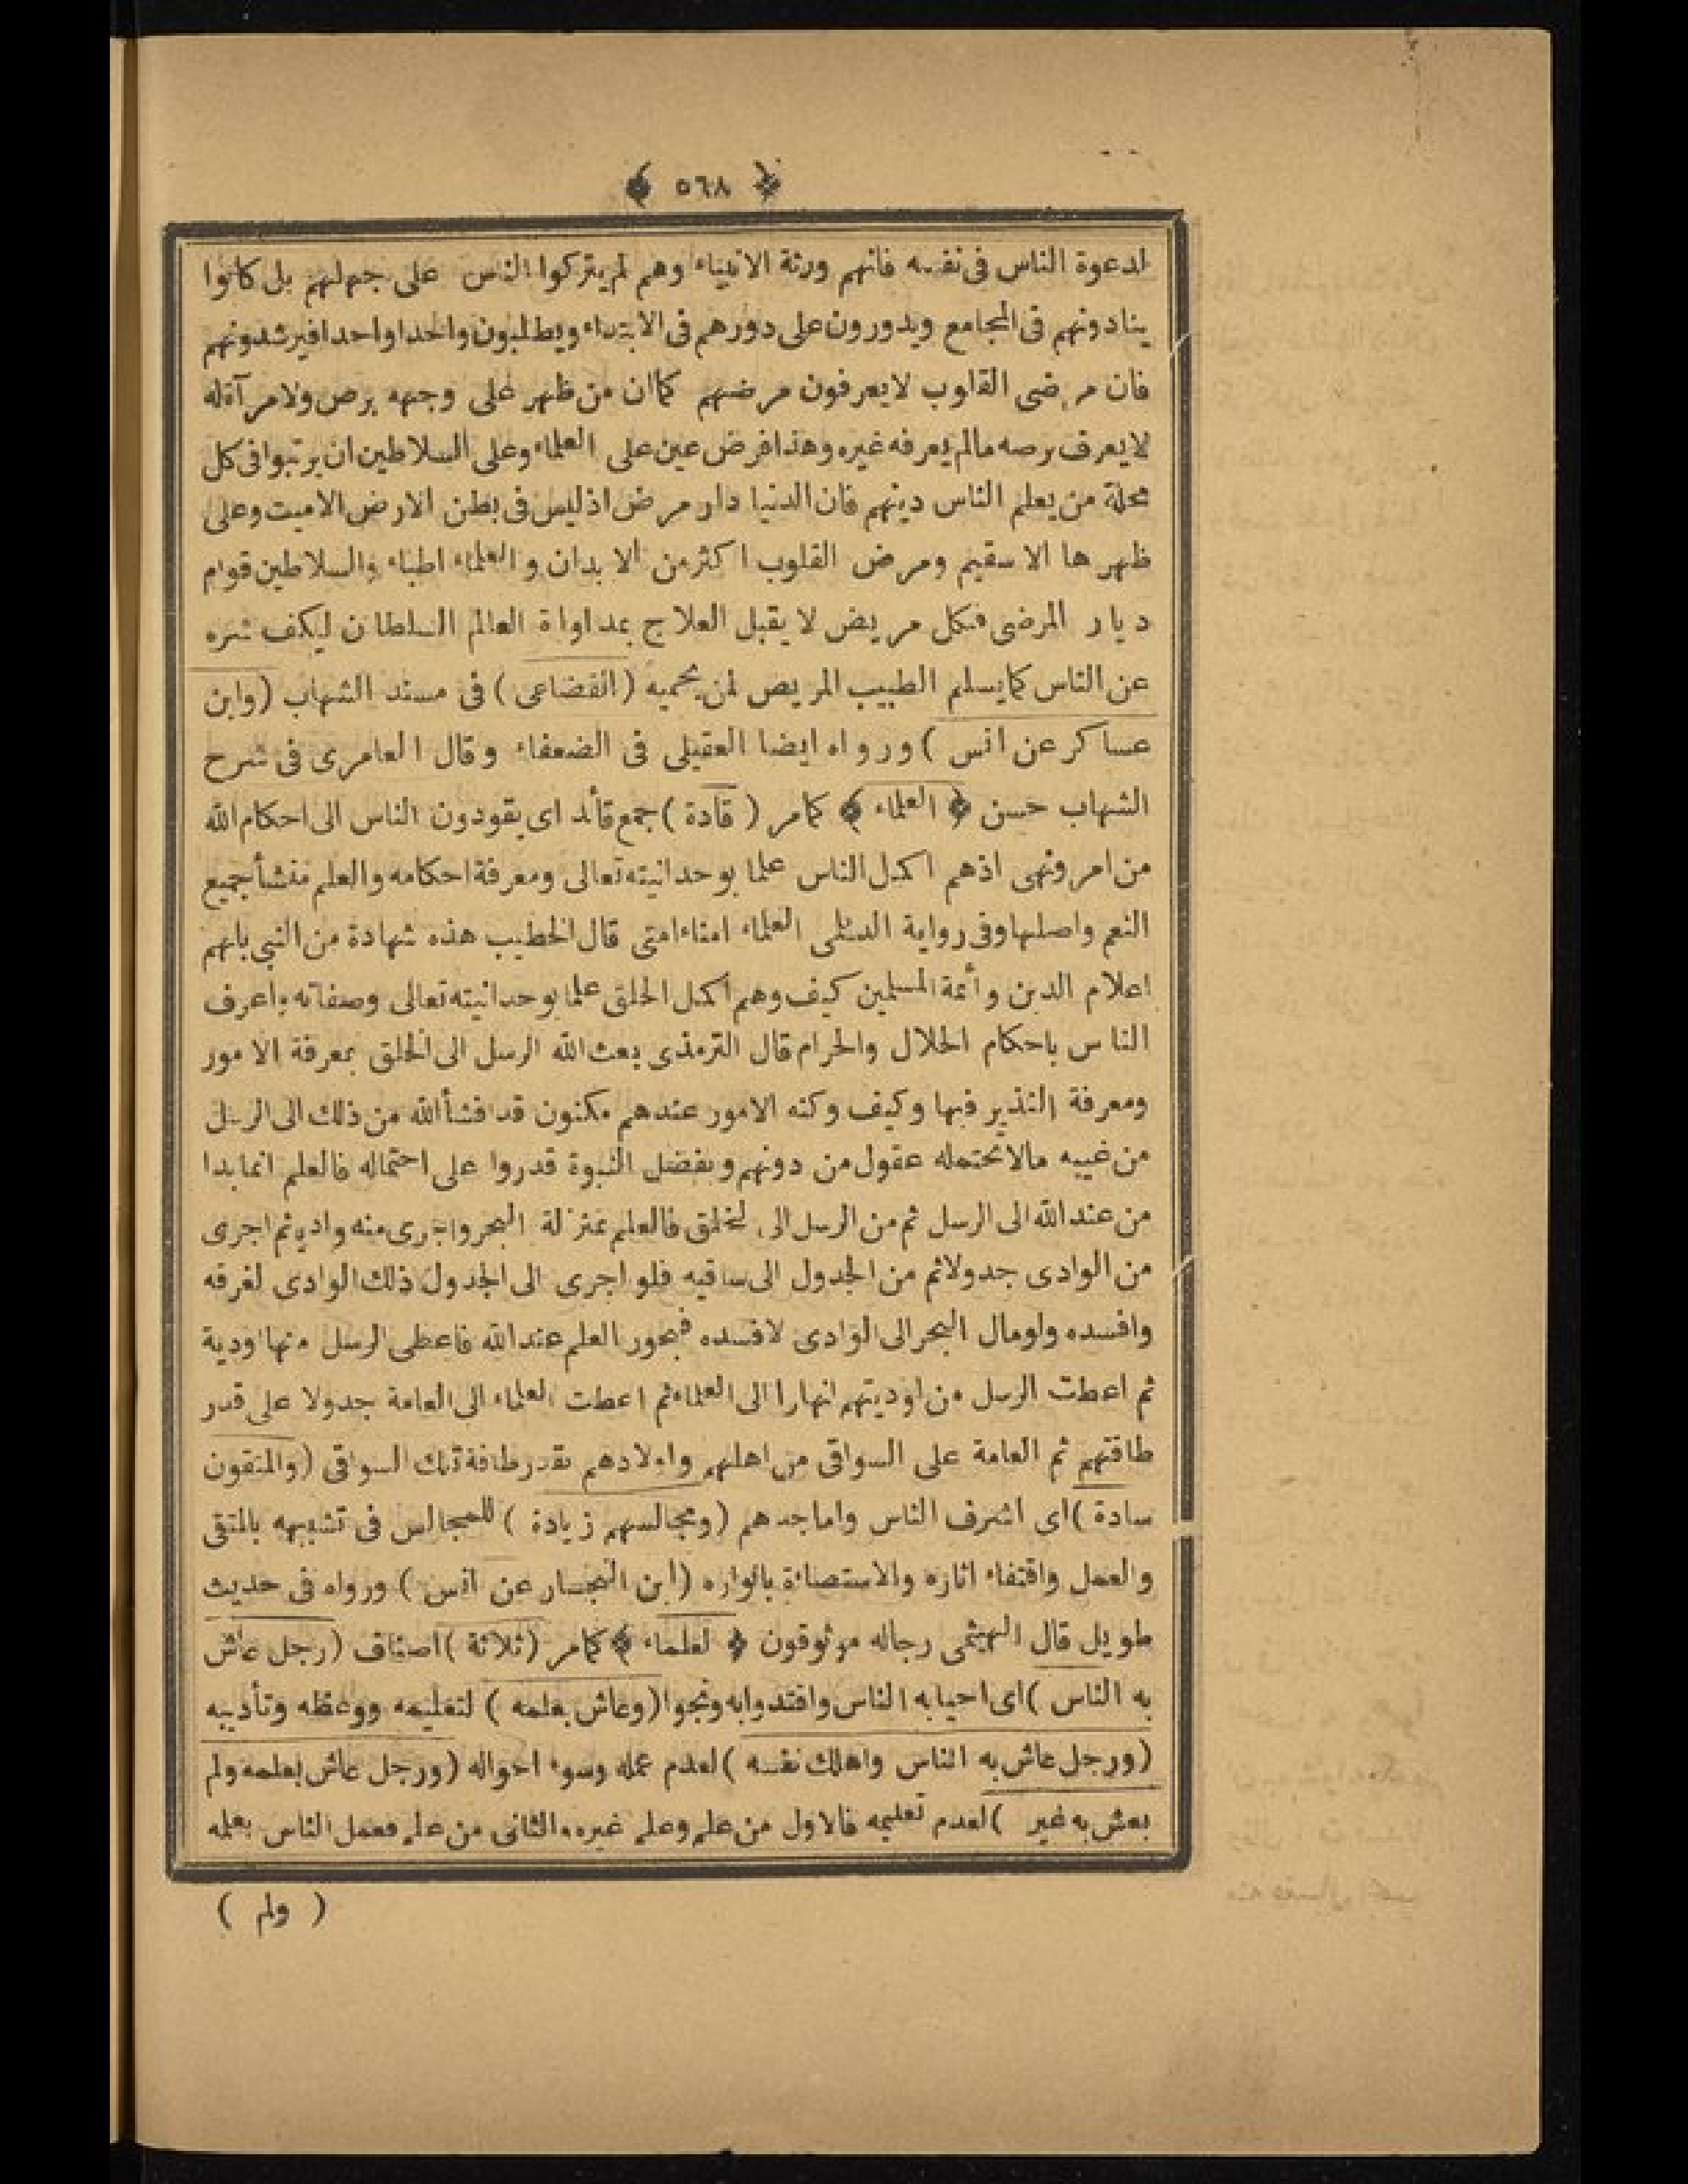 ﴿ ٥٦٨ ﴾
لدعوة الناس فى نفسه فانهم ورثة الانبياء وهم لم يتركوا الناس على جهلهم بل كانوا
ينادونهم فى المجامع ويدورون على دورهم فى الابتداء ويطلبون واحدا واحدا فيرشدونهم
فان مرضى القلوب لايعرفون مرضهم كما ان من ظهر على وجهه برص ولامرآة له
لايعرف برصه مالم يعرفه غيره وهذا فرض عين على العلماء وعلى السلاطين ان يرتبوا فى كل
محلة من يعلم الناس دينهم فان الدنيا دار مرض اذ ليس فى بطن الارض الاميت وعلى
ظهرها الا سقيم ومرض القلوب اكثر من الابدان والعلماء اطباء والسلاطين قوام
ديار المرضى فكل مريض لا يقبل العلاج بمداواة العالم السلطان ليكف شره
عن الناس كما يسلم الطبيب المريض لمن يحميه (القضاعى) فى مسند الشهاب (وابن
عساكر عن انس) ورواه ايضا العقيلى فى الضعفاء وقال العامرى فى شرح
الشهاب حسن ﴿ العلماء ﴾ كمامر (قادة) جمع قائد اى يقودون الناس الى احكام الله
من امر ونهى اذهم اكمل الناس علما بوحدانيته تعالى ومعرفة احكامه والعلم منشأ جميع
النعم واصلها وفى رواية الديلمى العلماء امناء امتى قال الخطيب هذه شهادة من النبى بانهم
اعلام الدين وأئمة المسلمين كيف وهم اكمل الخلق علما بوحدانيته تعالى وصفاته واعرف
الناس باحكام الحلال والحرام قال الترمذى بعث الله الرسل الى الخلق بمعرفة الامور
ومعرفة التدبير فيها وكيف وكنه الامور عندهم مكنون قد فشأ الله من ذلك الى الرسل
من غيبه مالاتحتمله عقول من دونهم وبفضل النبوة قدروا على احتماله فالعلم انما بدا
من عند الله الى الرسل ثم من الرسل الى الخلق فالعلم بمنزلة البحر واجرى منه واديم ثم اجرى
من الوادى جدولا ثم من الجدول الى ساقيه فلو اجرى الى الجدول ذلك الوادى لغرقه
وافسده ولومال البحر الى الوادى لافسده فبحور العلم عند الله فاعطى الرسل منها اودية
ثم اعطت الرسل من اوديتهم انهارا الى العلماء ثم اعطت العلماء الى العامة جدولا على قدر
طاقتهم ثم العامة على السواقى من اهلهم واولادهم بقدر طاقة تلك السواقى (والمتقون
سادة) اى اشرف الناس واماجدهم (ومجالسهم زيادة) للمجالس فى تشبيهه بالمتقى
والعمل واقتفاء اثاره والاستضاءة بانواره (ابن النجار عن انس) ورواه فى حديث
طويل قال الهيثمى رجاله موثوقون ﴿ لعلماء ﴾ كمامر (ثلاثة) اصناف (رجل عاش
به الناس) اى احيا به الناس واقتدوا به ونجوا (وعاش بعلمه) لتعليمه ووعظه وتأديبه
(ورجل عاش به الناس واهلك نفسه) لعدم عمله وسوء احواله (ورجل عاش بعلمه ولم
يعش به غير) لعدم تعليمه فالاول من علم وعلم غيره والثانى من علم فعمل الناس بعلمه
( ولم )